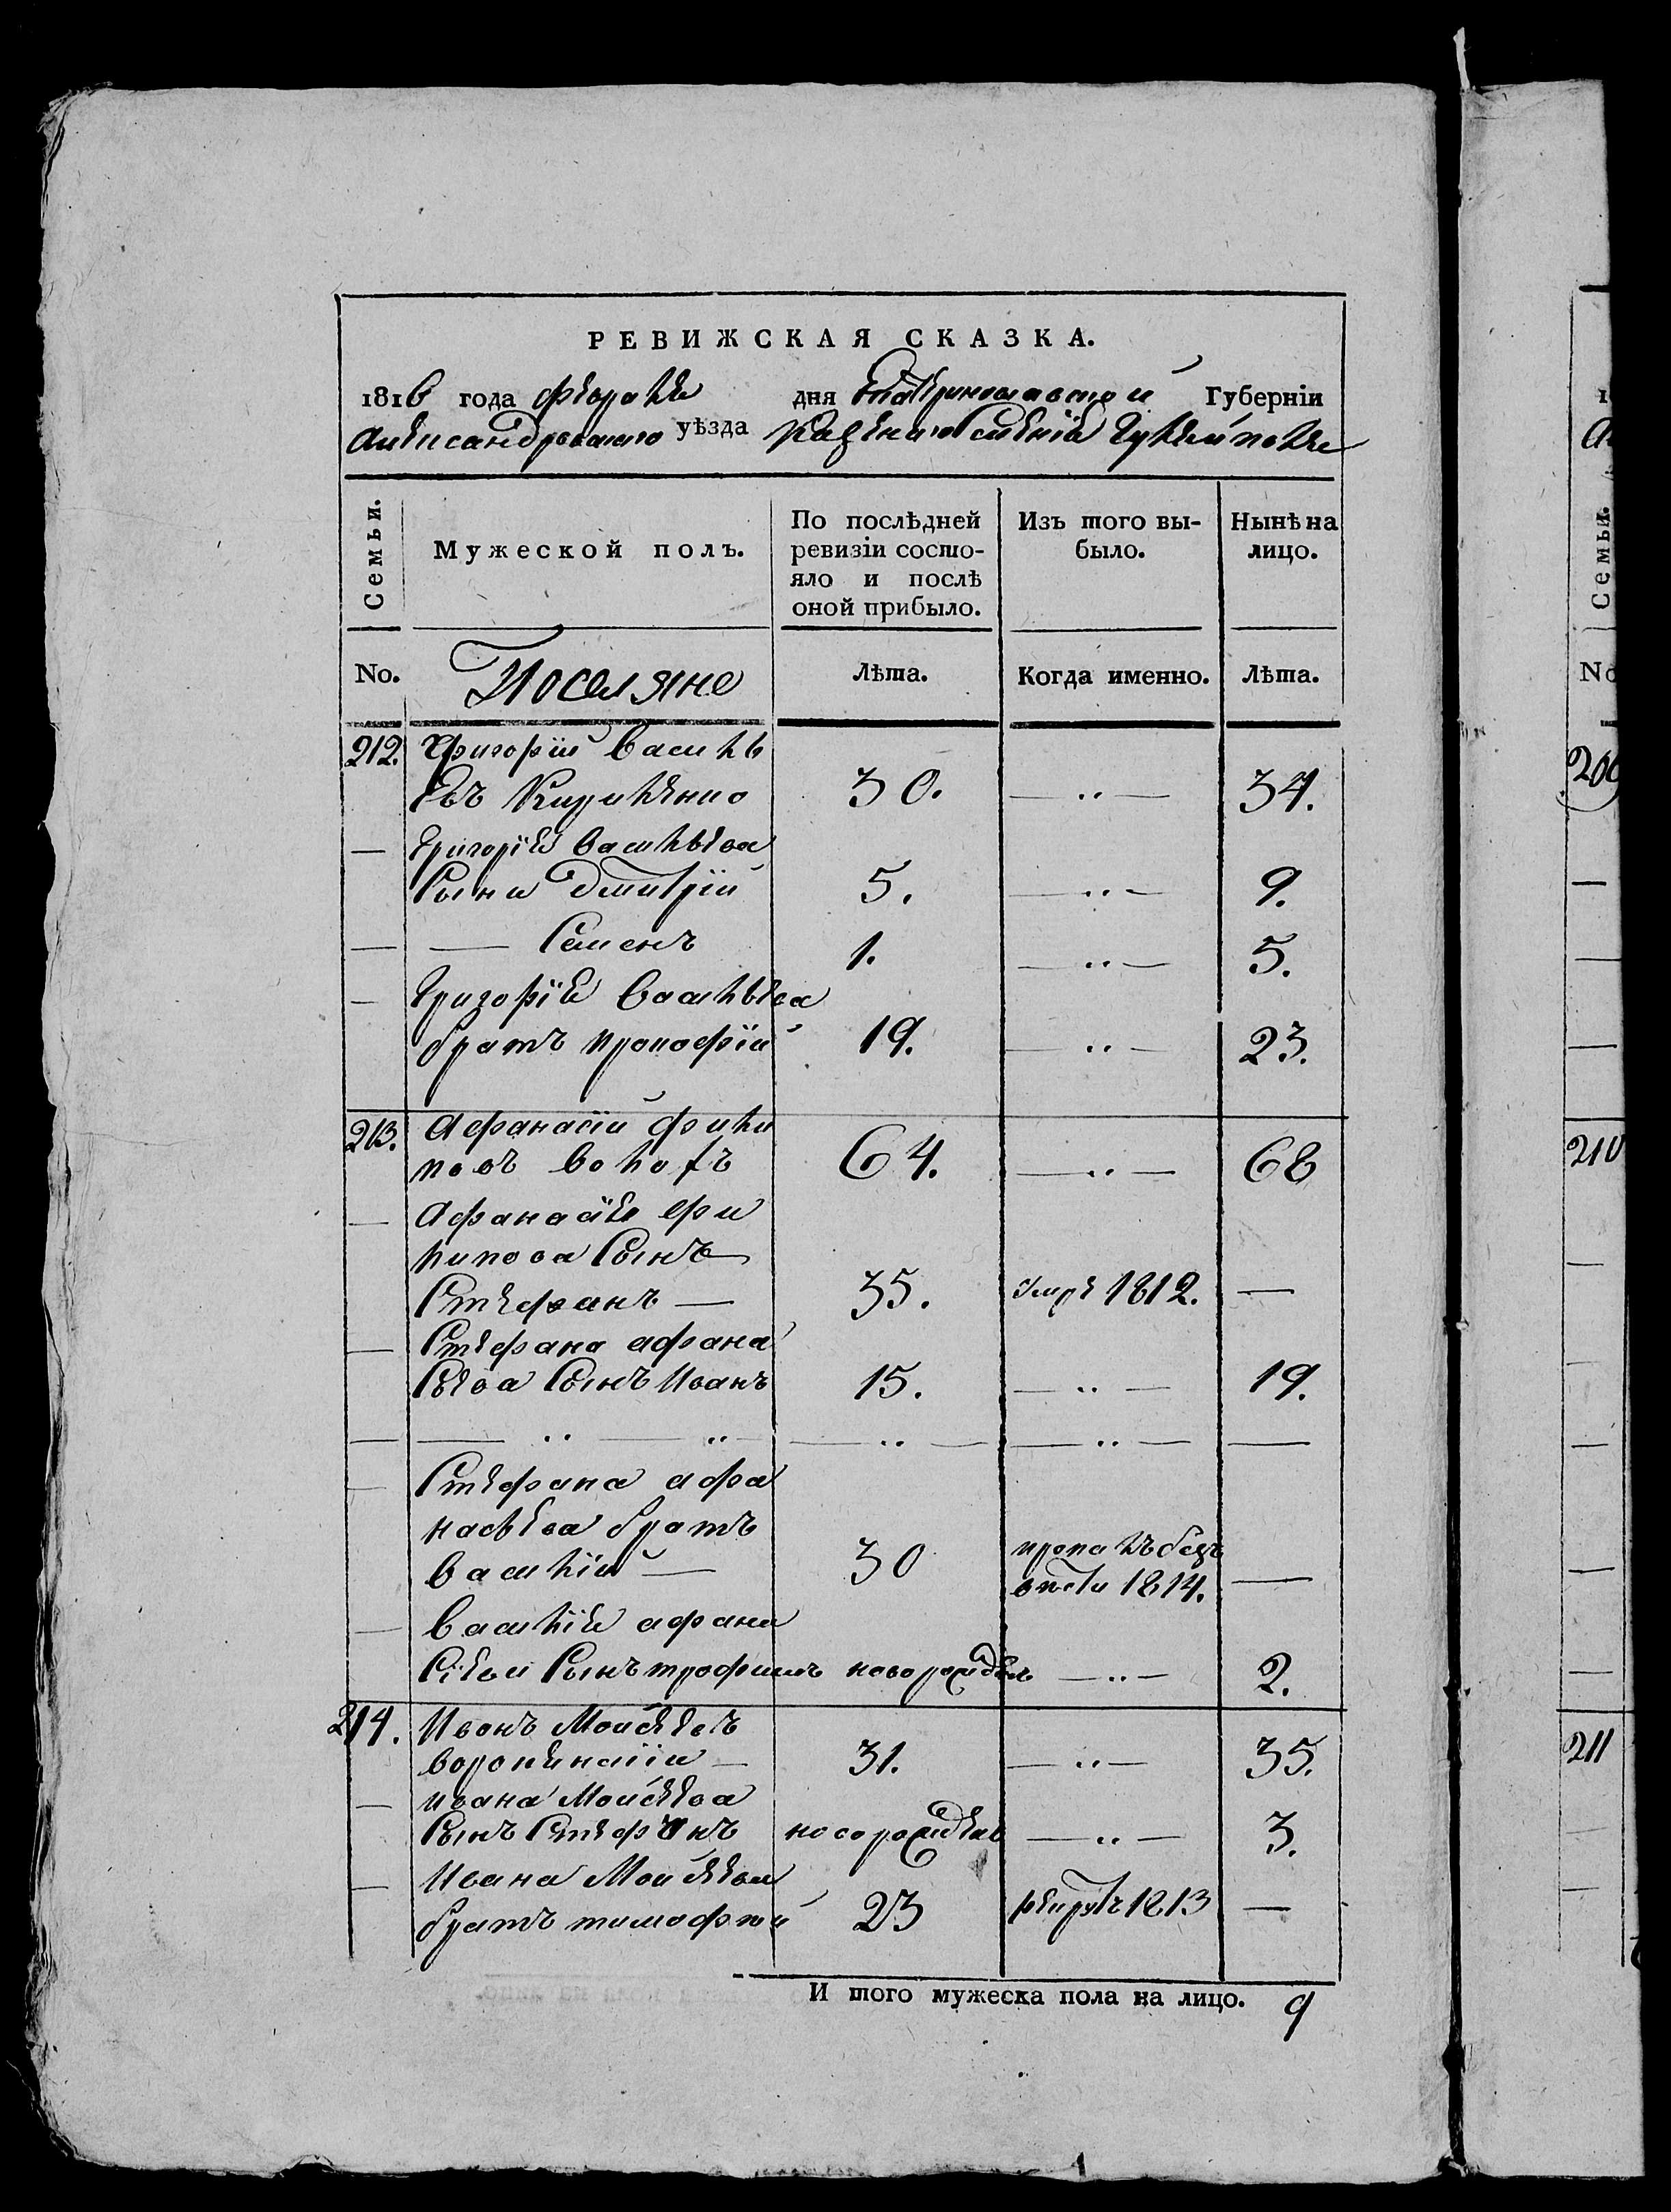 РЕВИЖСКАЯ СКАЗКА.
1816 года февраля дня Екатеринославской Губерніи
Александровскаго уѣзда Казеннаго селенія Гуляйполя
Семьи.
Мужеской полъ.
По послѣдней ревизіи состояло и послѣ оной прибыло.
Изъ того выбыло.
Нынѣ на лицо.
No. Поселяне Лѣта. Когда именно. Лѣта.
212. Григорій Василь
евъ Кириленко 30. — „ — 34.
— Григорія Васильева
Сыни Дмитрій 5. — „ — 9.
— — Семенъ 1. — „ — 5.
— Григорія Васильева
братъ прокофій 19. — „ — 23.
213. Афанасій фили
повъ Волохъ 64. — „ — 68
— Афанасія фи
липова Сынъ
Стефанъ — 35. умре 1812. —
— Стефана афана
сьева Сынъ Иванъ 15. — „ — 19.
— — „ — „ — „ — — „ — —
— Стефана афа
насьева братъ
василій — 30 пропалъ безъ
вѣсти 1814. —
— Василія афана
сьева Сынъ трофимъ новорожден — „ — 2.
214. Иванъ Моисеевъ
31. — „ — 35.
— ивана Моисеева
Сынъ Стефанъ новорожден — „ — 3.
— Ивана Моисеева
братъ тимофей 23 рекрутъ 1813 —
И того мужеска пола на лицо. 9
1
No
209
210
211